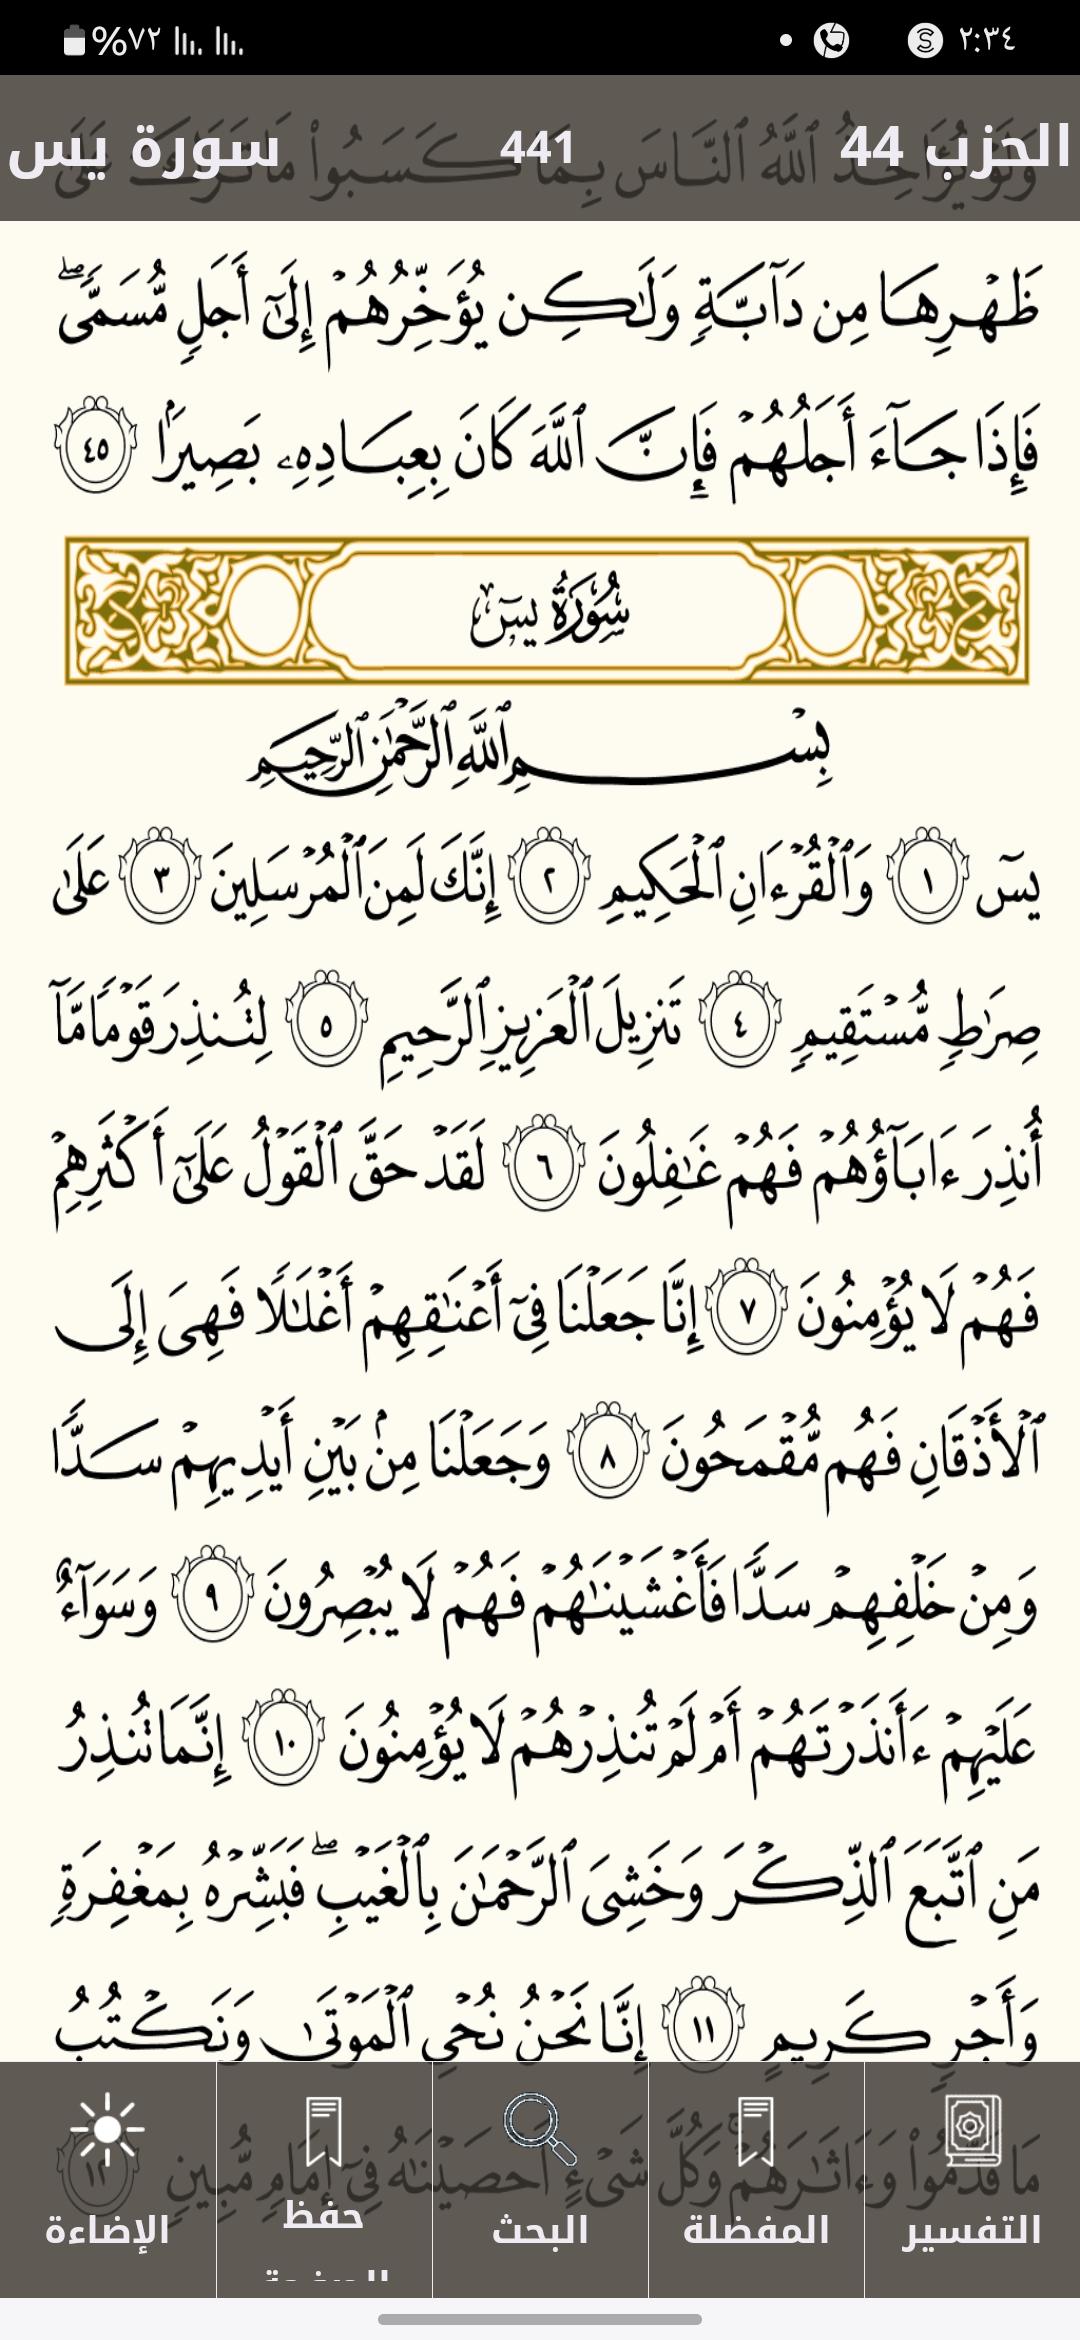 ٢:٣٤
%٧٢
الحزب 44 441 سورة يس
وَلَوْ يُؤَاخِذُ ٱللَّهُ ٱلنَّاسَ بِمَا كَسَبُوا۟ مَا تَرَكَ عَلَىٰ
ظَهْرِهَا مِن دَآبَّةٍ وَلَـٰكِن يُؤَخِّرُهُمْ إِلَىٰٓ أَجَلٍ مُّسَمًّى ۖ
فَإِذَا جَآءَ أَجَلُهُمْ فَإِنَّ ٱللَّهَ كَانَ بِعِبَادِهِۦ بَصِيرًۢا ٤٥
سُورَةُ يسٓ
بِسْمِ ٱللَّهِ ٱلرَّحْمَـٰنِ ٱلرَّحِيمِ
يسٓ ١ وَٱلْقُرْءَانِ ٱلْحَكِيمِ ٢ إِنَّكَ لَمِنَ ٱلْمُرْسَلِينَ ٣ عَلَىٰ
صِرَٰطٍ مُّسْتَقِيمٍ ٤ تَنزِيلَ ٱلْعَزِيزِ ٱلرَّحِيمِ ٥ لِتُنذِرَ قَوْمًا مَّآ
أُنذِرَ ءَابَآؤُهُمْ فَهُمْ غَـٰفِلُونَ ٦ لَقَدْ حَقَّ ٱلْقَوْلُ عَلَىٰٓ أَكْثَرِهِمْ
فَهُمْ لَا يُؤْمِنُونَ ٧ إِنَّا جَعَلْنَا فِىٓ أَعْنَـٰقِهِمْ أَغْلَـٰلًا فَهِىَ إِلَى
ٱلْأَذْقَانِ فَهُم مُّقْمَحُونَ ٨ وَجَعَلْنَا مِنۢ بَيْنِ أَيْدِيهِمْ سَدًّا
وَمِنْ خَلْفِهِمْ سَدًّا فَأَغْشَيْنَـٰهُمْ فَهُمْ لَا يُبْصِرُونَ ٩ وَسَوَآءٌ
عَلَيْهِمْ ءَأَنذَرْتَهُمْ أَمْ لَمْ تُنذِرْهُمْ لَا يُؤْمِنُونَ ١٠ إِنَّمَا تُنذِرُ
مَنِ ٱتَّبَعَ ٱلذِّكْرَ وَخَشِىَ ٱلرَّحْمَـٰنَ بِٱلْغَيْبِ ۖ فَبَشِّرْهُ بِمَغْفِرَةٍ
وَأَجْرٍ كَرِيمٍ ١١ إِنَّا نَحْنُ نُحْىِ ٱلْمَوْتَىٰ وَنَكْتُبُ
مَا قَدَّمُوا۟ وَءَاثَـٰرَهُمْ ۚ وَكُلَّ شَىْءٍ أَحْصَيْنَـٰهُ فِىٓ إِمَامٍ مُّبِينٍ ١٢
التفسير المفضلة البحث حفظ الإضاءة